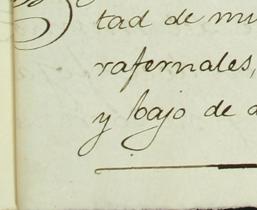 tad de mi
rafernales,
y bajo de